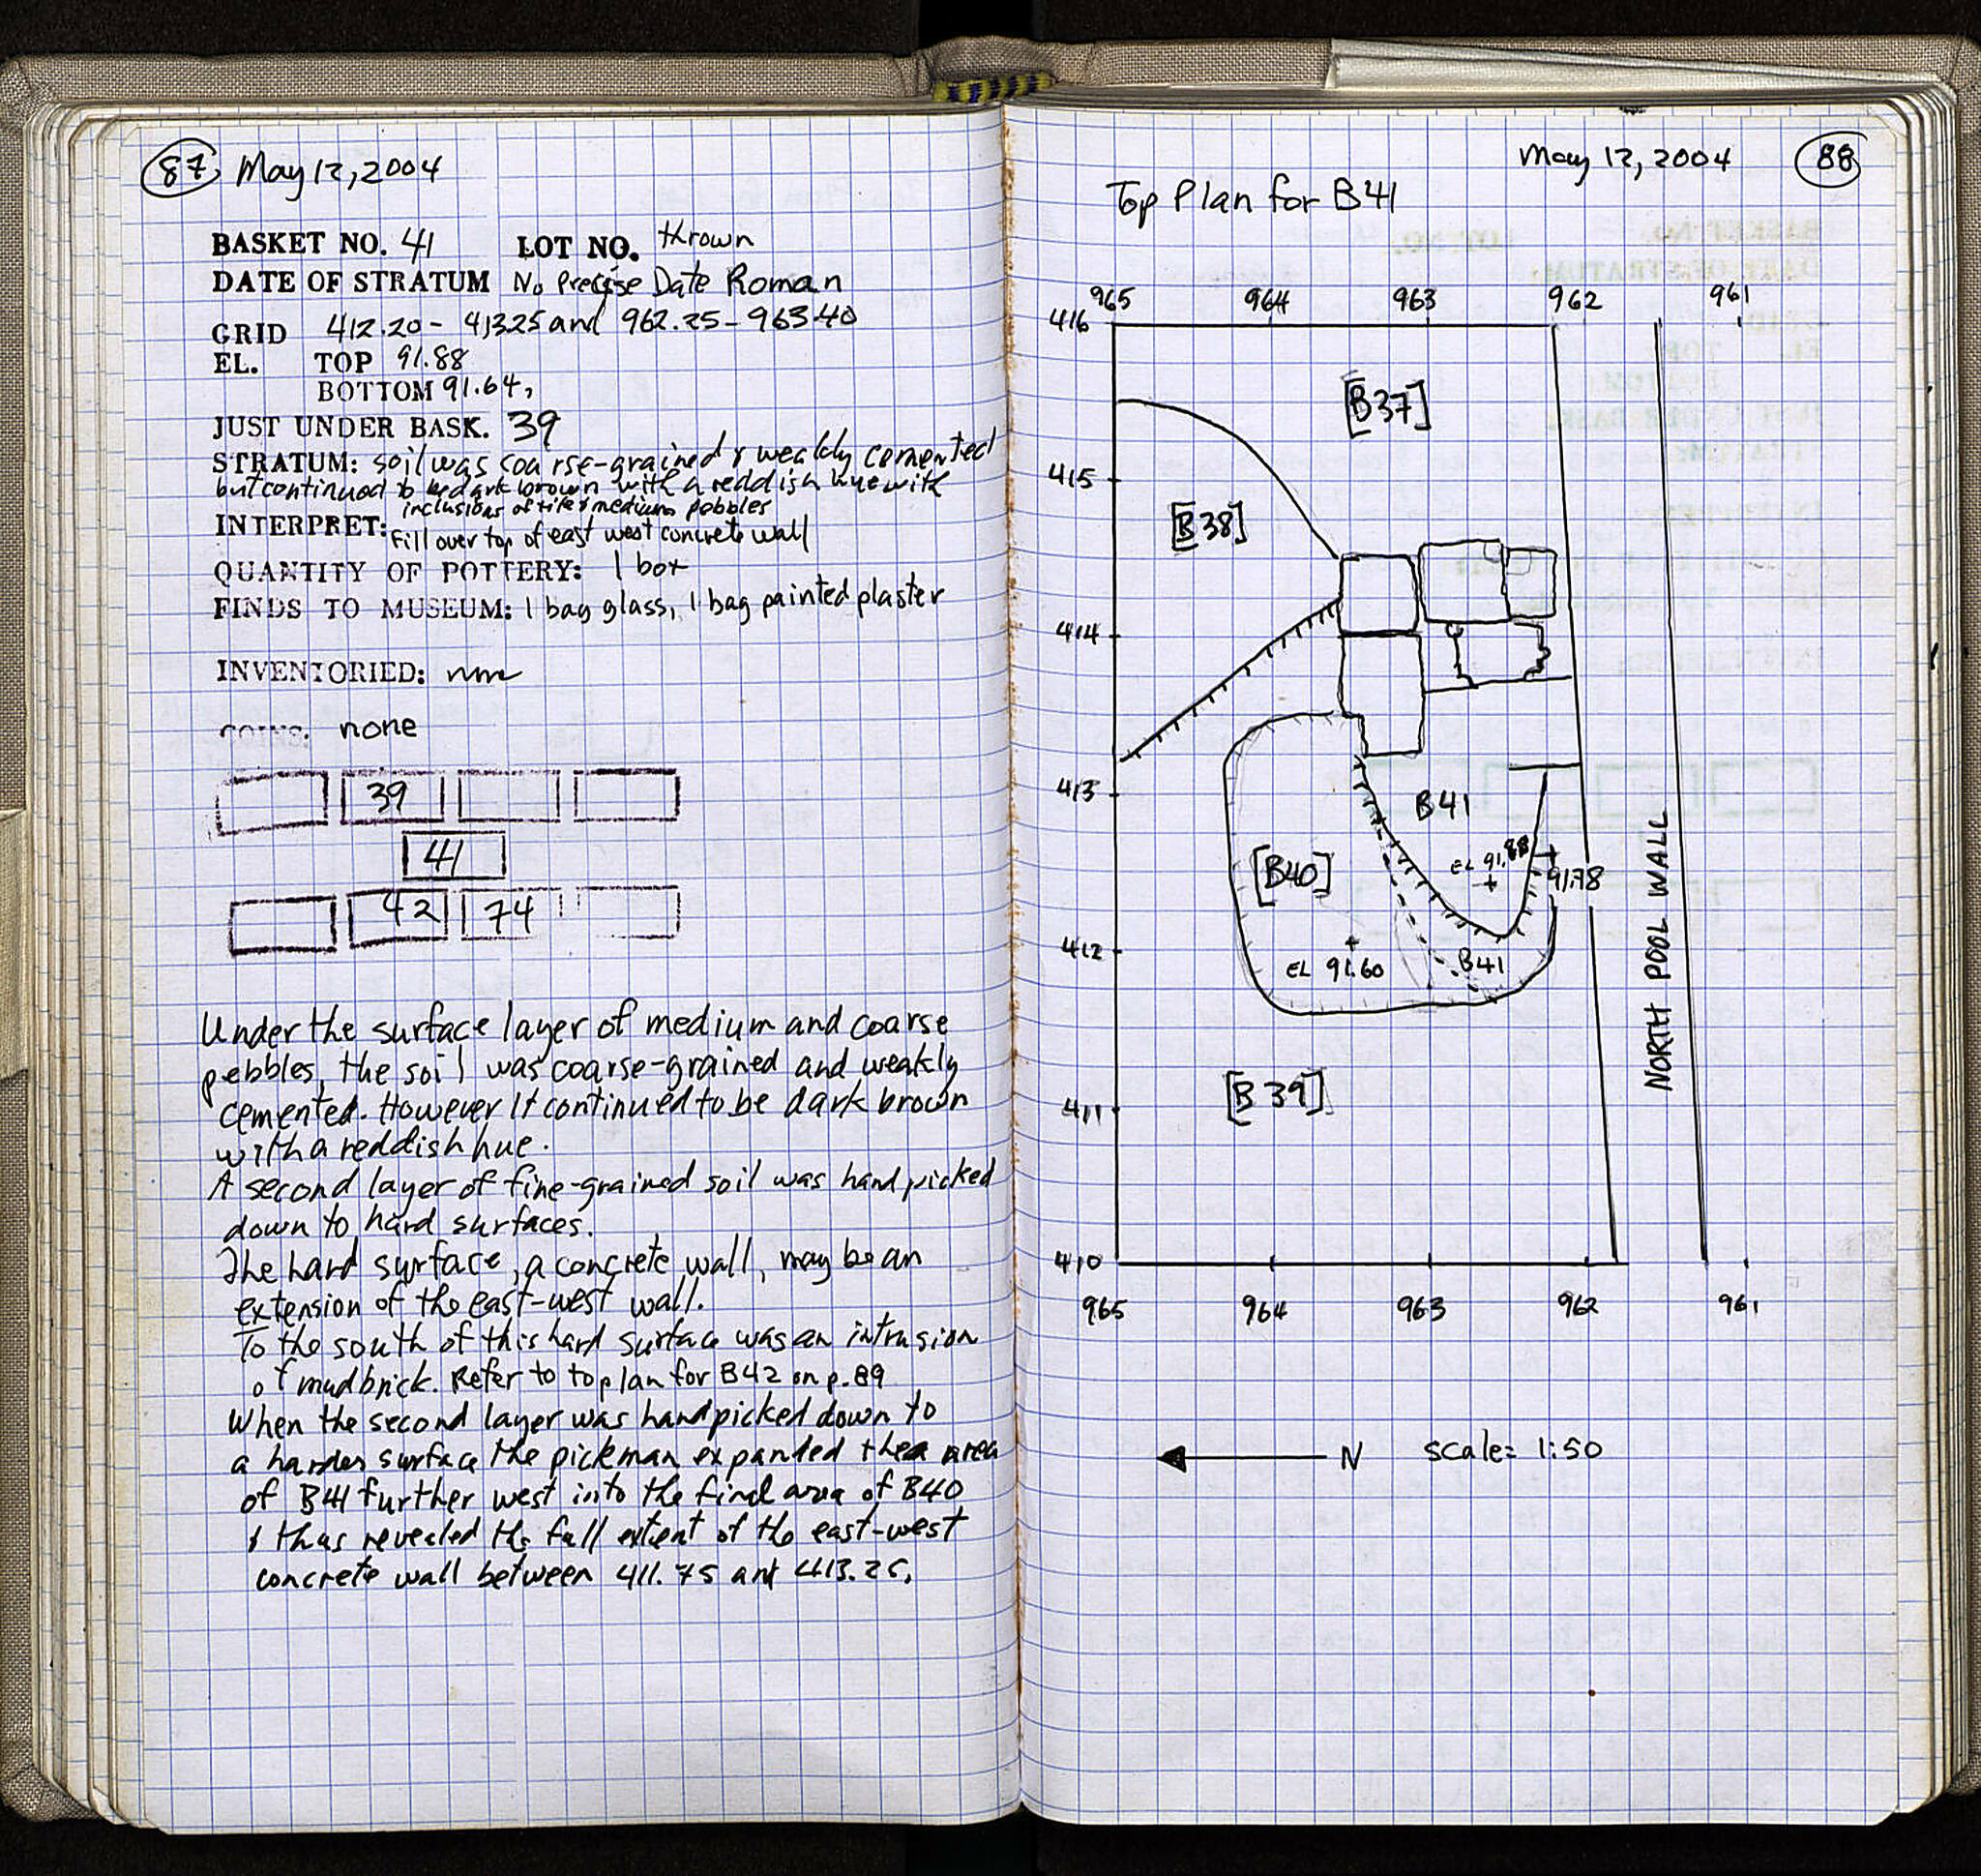 87 May 12, 2004
BASKET NO. 41 LOT NO. thrown
DATE OF STRATUM No Precise Date Roman
GRID 412.20 - 413.25 and 962.25 - 963.40
EL. TOP 91.88
BOTTOM 91.64,
JUST UNDER BASK. 39
STRATUM: soil was coarse-grained & weakly cemented
but continued to be dark brown with a reddish hue with
inclusions of tile & medium pebbles
INTERPRET: Fill over top of east west concrete wall
QUANTITY OF POTTERY: 1 box
FINDS TO MUSEUM: 1 bag glass, 1 bag painted plaster
INVENTORIED: none
COINS. none
39
41
42 74
Under the surface layer of medium and coarse
pebbles, the soil was coarse-grained and weakly
cemented. However It continued to be dark brown
with a reddish hue.
A second layer of fine-grained soil was hand picked
down to hard surfaces.
The hard surface, a concrete wall, may be an
extension of the east-west wall.
To the south of this hard surface was an intrusion
of mudbrick. Refer to top lan for B42 on p. 89
When the second layer was handpicked down to
a harder surface the pickman expanded the area
of B41 further west into the final area of B40
& thus revealed the full extent of the east-west
concrete wall between 411.75 and 413.25.
May 12, 2004 88
Top Plan for B41
965 964 963 962 961
416
[B37]
415
[B38]
414
413
B41
[B40]
EL 91.88
91.78
412
EL 91.60
B41
NORTH POOL WALL
[B39]
411
410
965 964 963 962 961
N scale= 1:50